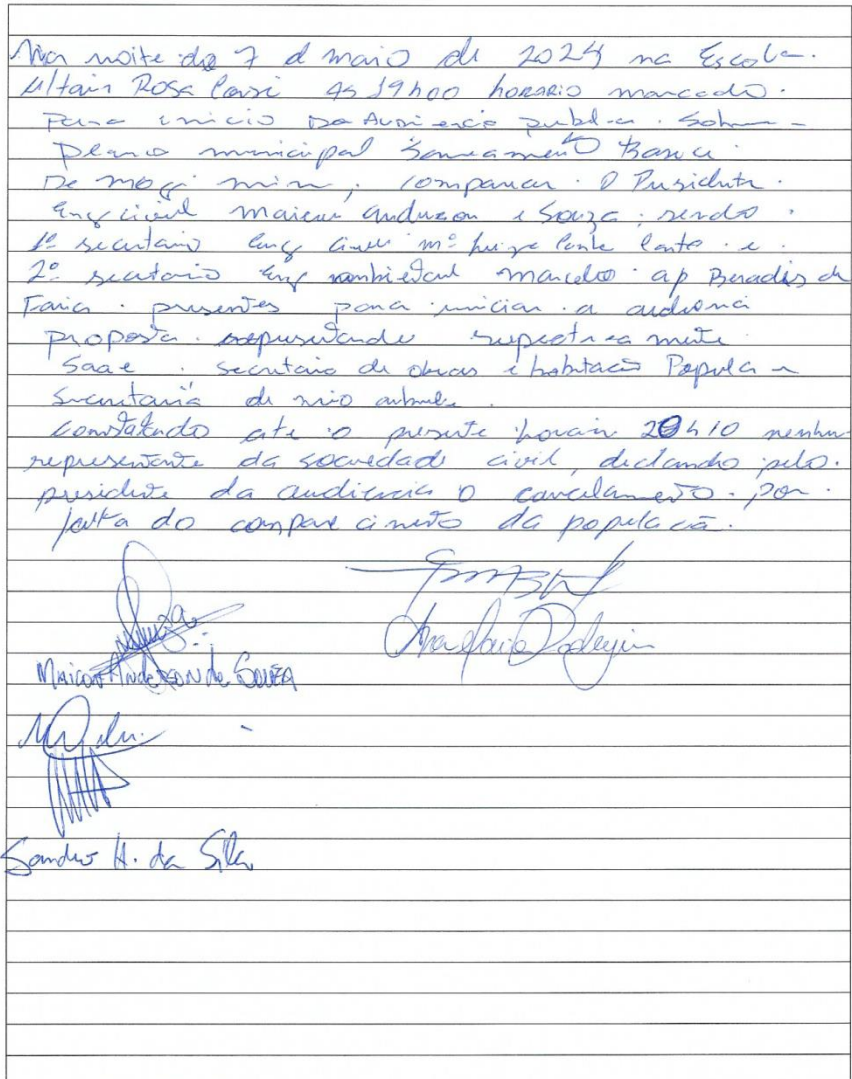 Na noite de 7 d maio de 2024 na Escola.
Altair Rosa às 19h00 horario marcado.
Para inicio Da Audiencia publica. Sobre
plano municipal Saneamento Basico.
De mogi mirim, comparecer. O Presidente.
Eng civil Maicon anderson e Souza; sendo.
1º secretario Eng civil mª Luiza Conte e.
2º secretario Eng ambiental marcelo ap de
Faria. presentes para iniciar a audiencia
proposta. representando respectivamente
Saae. secretario de obras e habitacao Popular
Secretaria de meio ambiente.
Constatando ate o presente horario 20h10 nenhum
representante da sociedade civil, declarado pelo.
presidente da audiencia o cancelamento. por.
falta do comparecimento da população.
Maicon Anderson de Souza
Sandro H. da Silva